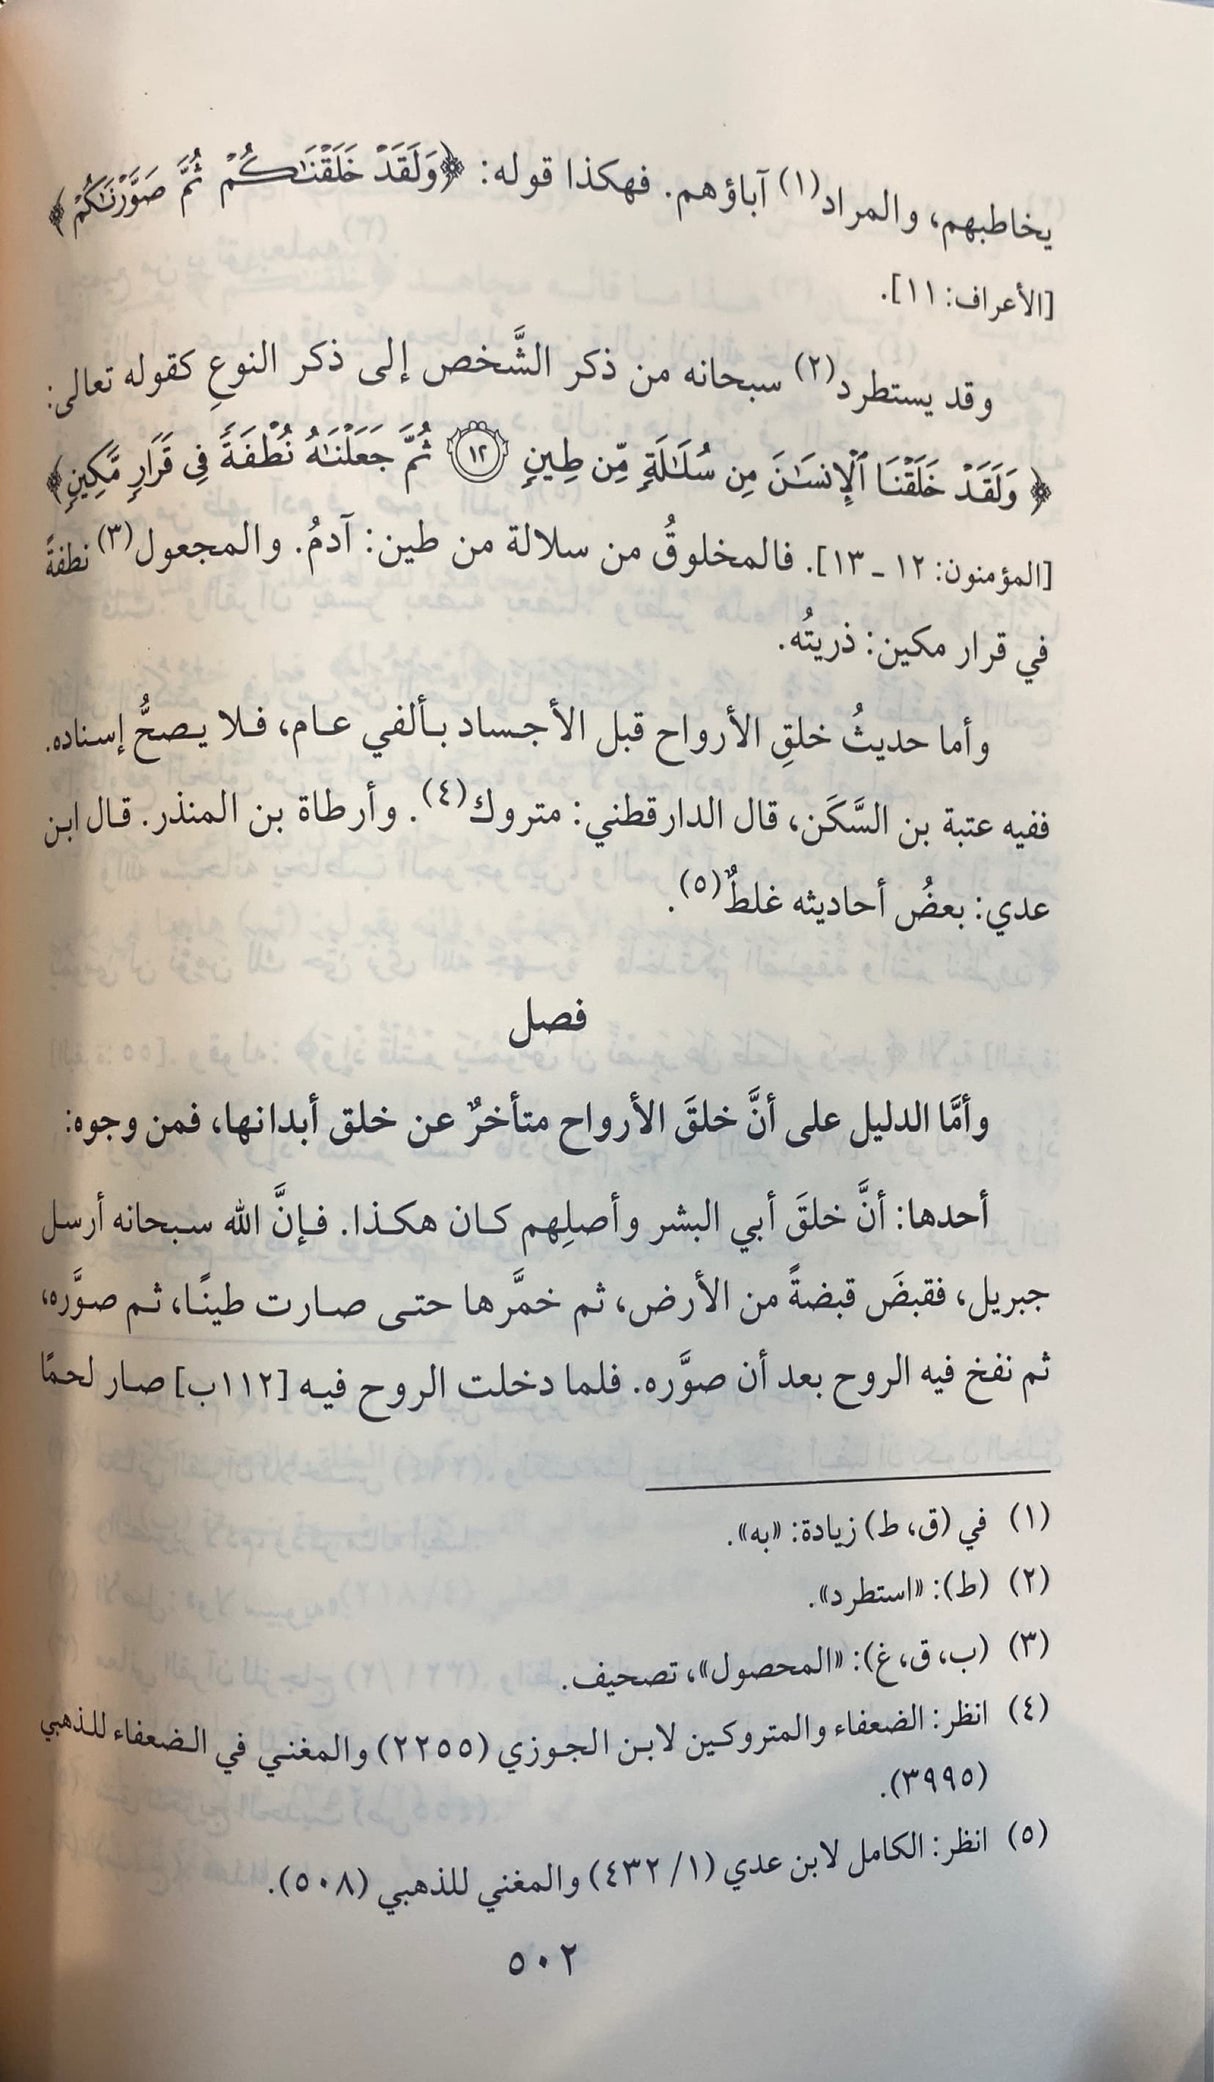 يخاطبهم، والمراد(١) آباؤهم. فهكذا قوله: ﴿وَلَقَدۡ خَلَقۡنَٰكُمۡ ثُمَّ صَوَّرۡنَٰكُمۡ﴾
[الأعراف: ١١].
وقد يستطرد(٢) سبحانه من ذكر الشَّخص إلى ذكر النوعِ كقوله تعالى:
﴿وَلَقَدۡ خَلَقۡنَا ٱلۡإِنسَٰنَ مِن سُلَٰلَةٖ مِّن طِينٖ ١٢ ثُمَّ جَعَلۡنَٰهُ نُطۡفَةٗ فِي قَرَارٖ مَّكِينٖ﴾
[المؤمنون: ١٢ ـ ١٣]. فالمخلوقُ من سلالة من طين: آدمُ. والمجعول(٣) نطفةً
في قرار مكين: ذريتُه.
وأما حديثُ خلقِ الأرواح قبل الأجساد بألفي عام، فلا يصحُّ إسناده.
ففيه عتبة بن السَّكَن، قال الدارقطني: متروك(٤). وأرطاة بن المنذر. قال ابن
عدي: بعضُ أحاديثه غلطٌ(٥).
فصل
وأمَّا الدليل على أنَّ خلقَ الأرواح متأخرٌ عن خلق أبدانها، فمن وجوه:
أحدها: أنَّ خلقَ أبي البشر وأصلِهم كان هكذا. فإنَّ الله سبحانه أرسل
جبريل، فقبضَ قبضةً من الأرض، ثم خمَّرها حتى صارت طينًا، ثم صوَّره،
ثم نفخ فيه الروح بعد أن صوَّره. فلما دخلت الروح فيه [١١٢ب] صار لحمًا
(١) في (ق، ط) زيادة: «به».
(٢) (ط): «استطرد».
(٣) (ب، ق، غ): «المحصول»، تصحيف.
(٤) انظر: الضعفاء والمتروكين لابن الجوزي (٢٢٥٥) والمغني في الضعفاء للذهبي
(٣٩٩٥).
(٥) انظر: الكامل لابن عدي (١/ ٤٣٢) والمغني للذهبي (٥٠٨).
٥٠٢